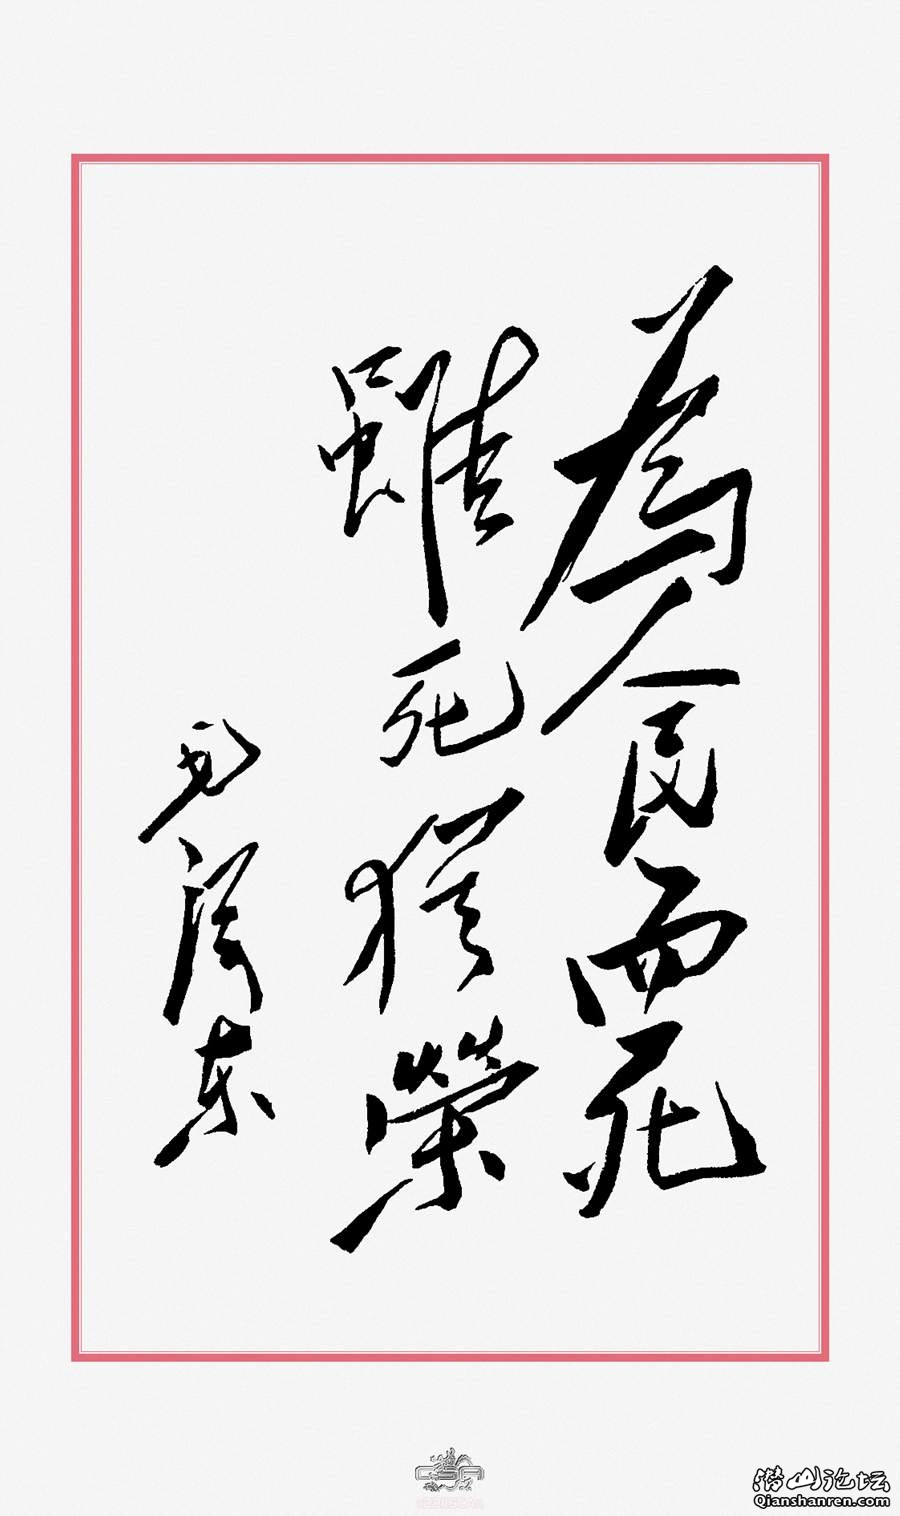 為人民而死
雖死猶榮
毛澤東
潜山论坛
Qianshanren.com